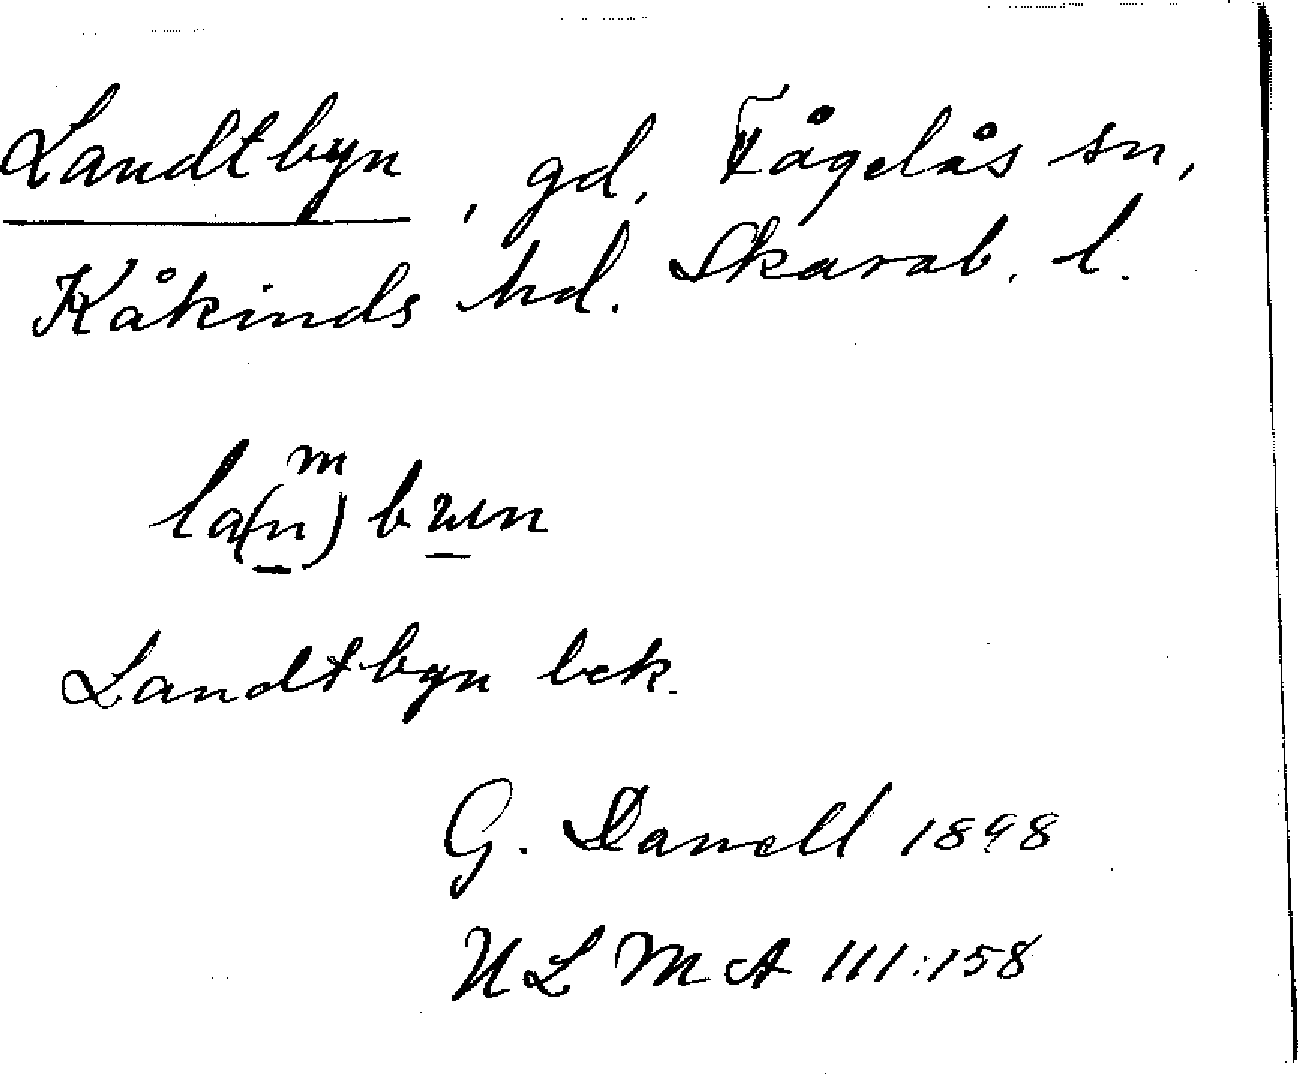 Landtbyn, gd, Fågelås sn,
Kåkinds hd. Skarab. l.
m
la(n) b n
Landtbyn bck.
G. Danell 1898
ULMA 111:158